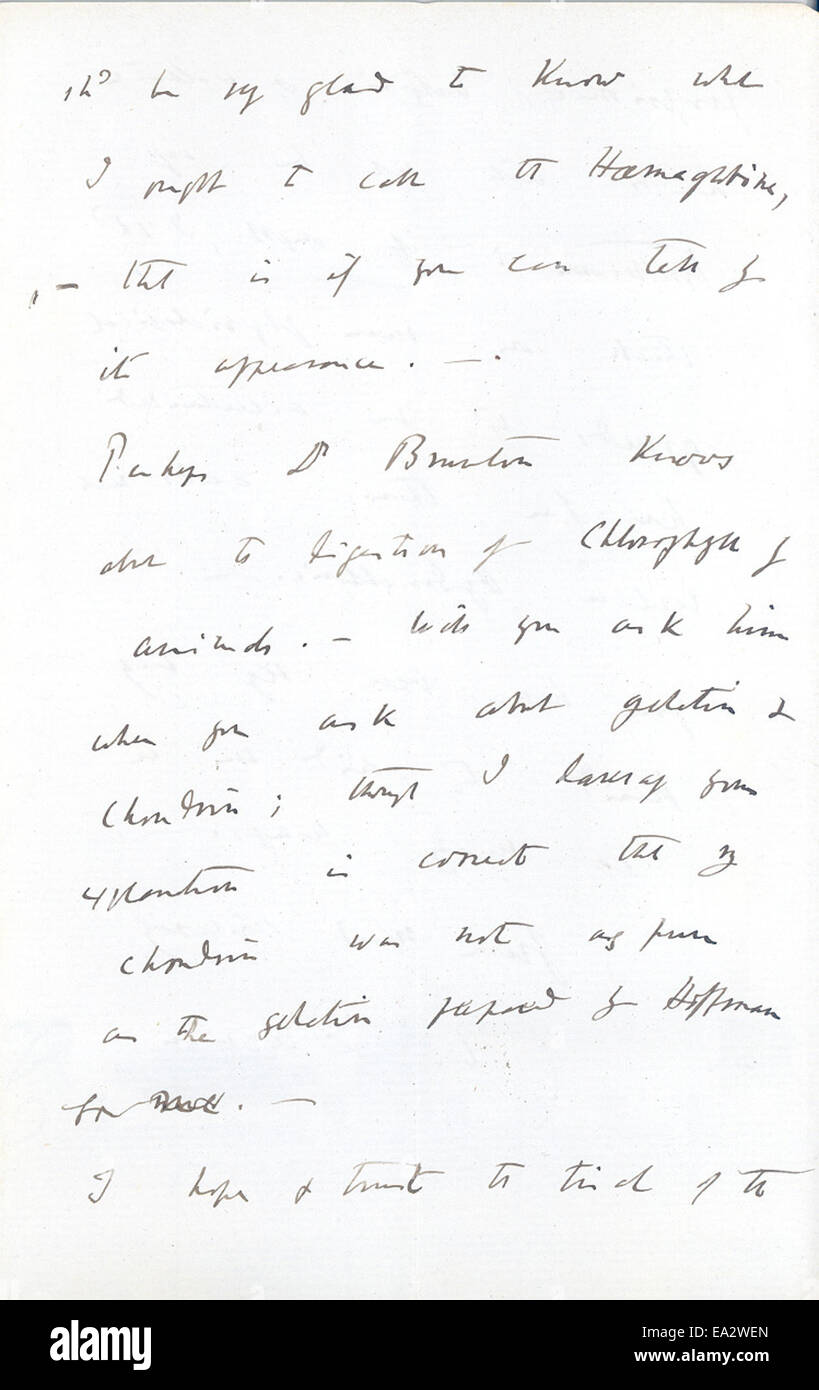 shd be vy glad to know what
I ought to call the Hæmaglobine,
, — that is if you can tell by
its appearance. —.
Perhaps Dr Brunton knows
about the digestion of Chlorophyll by
animals. — Will you ask him
when you ask about gelatin &
chondrin; though I daresay your
explanation is correct that my
chondrin was not as pure
as the gelatin prepared by Hoffman
for
I hope & trust the trial of the
alamy stock photo
EA2WEN
www.alamy.com